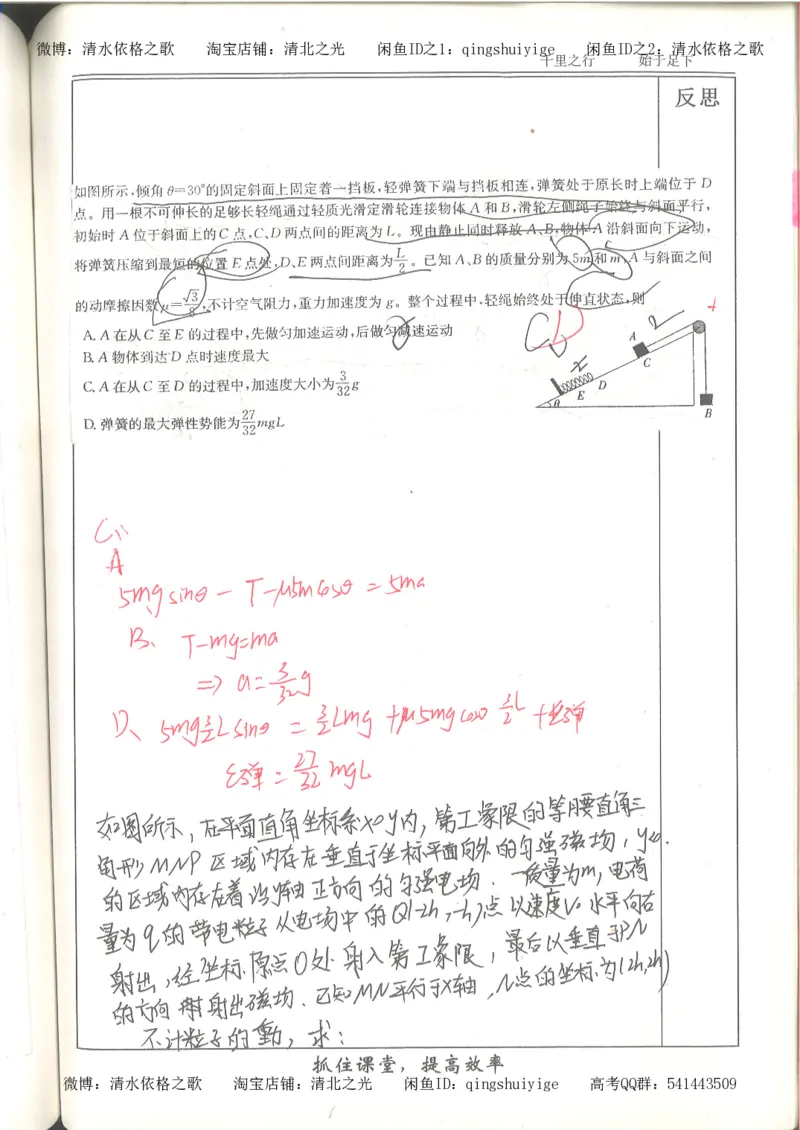 微博：清水依格之歌 淘宝店铺：清北之光 闲鱼ID之1：qingshuiyige 闲鱼ID之2：清水依格之歌
千里之行 始于足下
反思
如图所示,倾角θ=30°的固定斜面上固定着一挡板,轻弹簧下端与挡板相连,弹簧处于原长时上端位于D
点。用一根不可伸长的足够长轻绳通过轻质光滑定滑轮连接物体A和B,滑轮左侧绳子始终与斜面平行,
初始时A位于斜面上的C点,C、D两点间的距离为L。现由静止同时释放A、B,物体A沿斜面向下运动,
将弹簧压缩到最短的位置E点处,D、E两点间距离为L/2。已知A、B的质量分别为5m和m,A与斜面之间
的动摩擦因数μ=√3/8,不计空气阻力,重力加速度为g。整个过程中,轻绳始终处于伸直状态,则
A.A在从C至E的过程中,先做匀加速运动,后做匀减速运动
B.A物体到达D点时速度最大
C.A在从C至D的过程中,加速度大小为3/32 g
D.弹簧的最大弹性势能为27/32 mgL
A
C
D
E
θ
B
CD
C、
A
5mgsinθ - T-μ5mcosθ = 5ma
B、 T-mg=ma
=> a=3/32 g
D、 5mg3/2Lsinθ = 3/2Lmg +μ5mgcosθ 3L/2 +E弹
E弹 = 27/32 mgL
如图所示，在平面直角坐标系xOy内，第I象限的等腰直角三
角形MNP区域内存在垂直于坐标平面向外的匀强磁场，y<0
的区域内存在着沿y轴正方向的匀强电场．一质量为m，电荷
量为q的带电粒子从电场中的Q(-2h,-h)点以速度V0水平向右
射出，经坐标原点O处射入第I象限，最后以垂直于PN
的方向射出磁场．已知MN平行于x轴，N点的坐标为(2h,2h)
不计粒子的重力，求：
抓住课堂，提高效率
微博：清水依格之歌 淘宝店铺：清北之光 闲鱼ID：qingshuiyige 高考QQ群：541443509